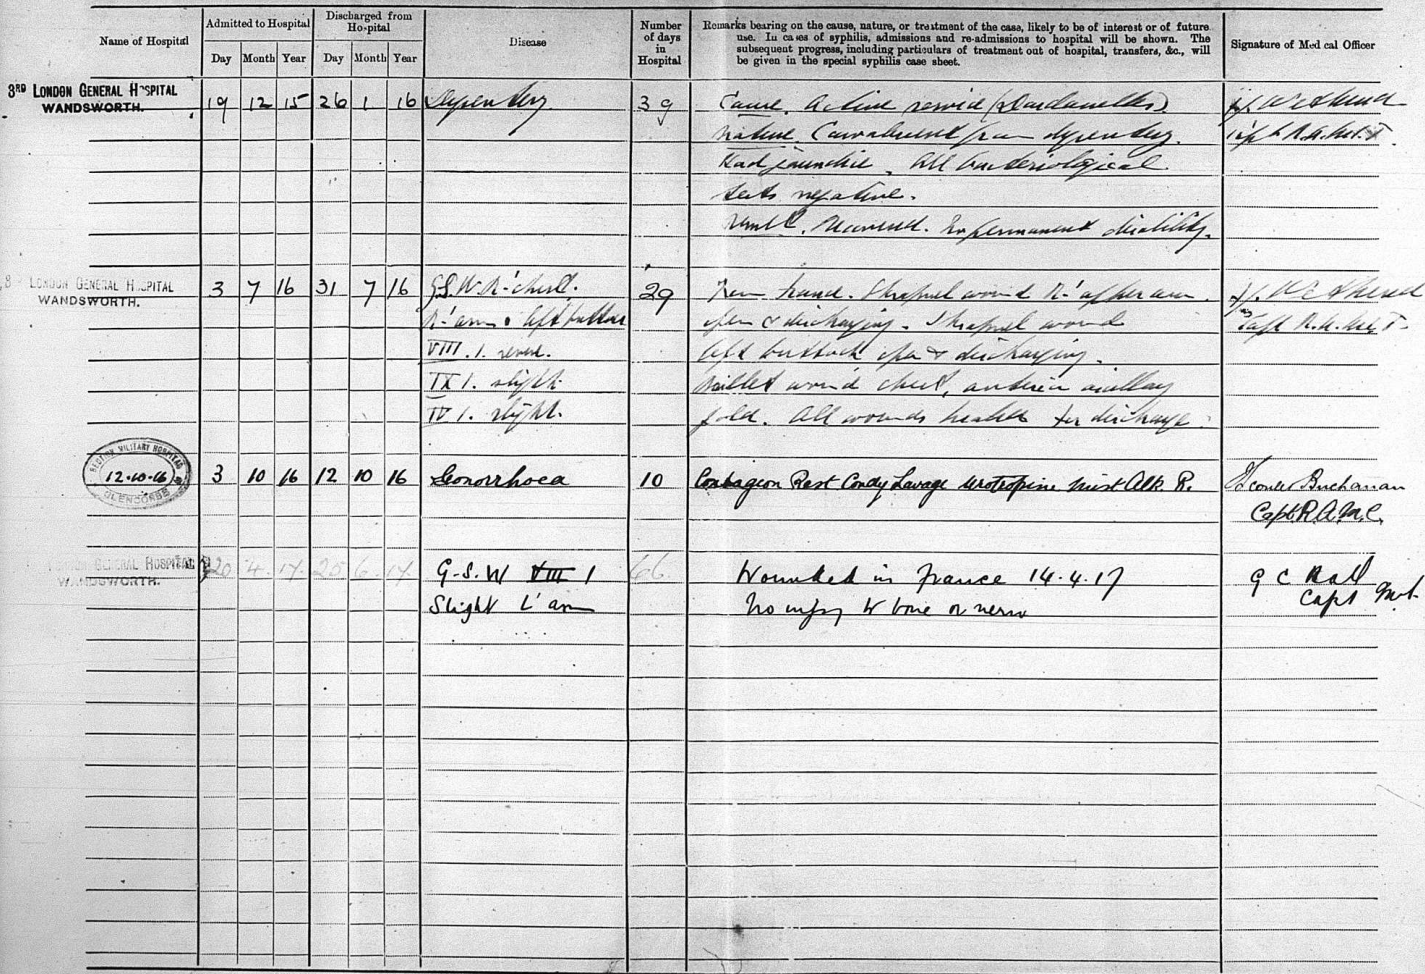 Name of Hospital
Admitted to Hospital
Discharged from Hospital
Day Month Year Day Month Year
Disease
Number of days in Hospital
Remarks bearing on the cause, nature, or treatment of the case, likely to be of interest or of future
use. In cases of syphilis, admissions and re-admissions to hospital will be shown. The
subsequent progress, including particulars of treatment out of hospital, transfers, &c., will
be given in the special syphilis case sheet.
Signature of Medical Officer
3RD LONDON GENERAL HOSPITAL
WANDSWORTH.
19 12 15 26 1 16 Dysentery 39 Cause. Active service (Dardanelles).
Nature. Convalescent from dysentery. Capt R.A.M.C.T.
Had jaundice. All bacteriological
tests negative.
Result. Recovered. No permanent disability.
LONDON GENERAL HOSPITAL
WANDSWORTH.
3 7 16 31 7 16 G.S.W. R' chest. 29 From France. Shrapnel wound R' upper arm.
R' arm. left buttock open & discharging. Shrapnel wound Capt R.A.M.C.T.
VIII. 1. severe. left buttock open & discharging.
IX 1. slight Bullet wound chest, anterior axillary
IV 1. slight. fold. All wounds healed for discharge.
SECTION MILITARY HOSPITAL
12·10·16
GLENCORSE
3 10 16 12 10 16 Gonorrhoea 10 Contagion Rest Condy Lavage Urotropine Mist Alk. R. Buchanan
Capt R.A.M.C.
GENERAL HOSPITAL
WANDSWORTH.
20 4 17 25 6 17 G.S.W VIII 1 66 Wounded in France 14.4.17 G C
Slight L' arm No injury to bone or nerve Capt